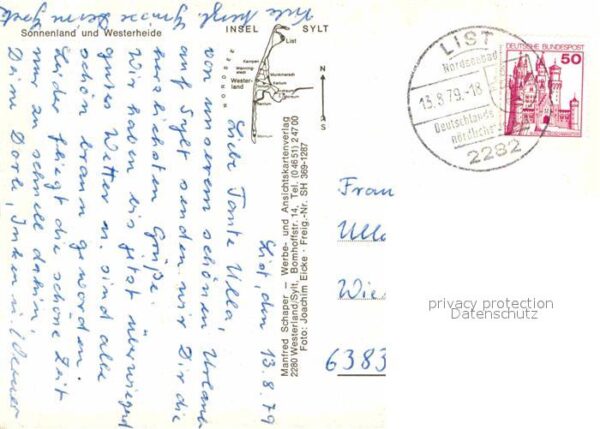 Sonnenland und Westerheide
INSEL SYLT
List
Kampen
Westerland
NORDSEE
N
S
Manfred Schaper – Werbe- und Ansichtskartenverlag
2280 Westerland/Sylt, Bomhoffstr. 14, Tel. (0 46 51) 2 47 00
Foto: Joachim Eicke - Freig.-Nr. SH 369-1287
LIST
Nordseebad
13.8.79.-18
Deutschlands
nördlichster
2282
DEUTSCHE BUNDESPOST
50
List, den 13.8.79
Liebe Tante Ulla,
von unserem schönen Urlaub
auf Sylt senden wir Dir die
herzlichsten Grüße.
Wir haben bis jetzt überwiegend
gutes Wetter u. sind alle
schön braun geworden.
Leider fliegt die schöne Zeit
nur zu schnell dahin,
Deine Dorle, Inken u. Werner
Viele herzl. Grüße Deine
Frau
Ulla
Wie
6383
privacy protection
Datenschutz